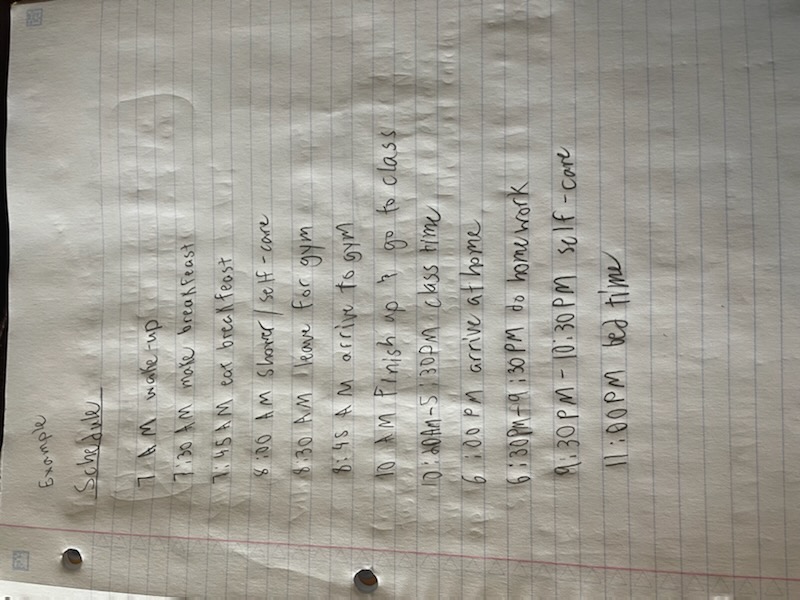 Example
Schedule
7 AM wake-up
7:30 AM make breakfeast
7:45 AM eat breakfeast
8:00 AM shower/self-care
8:30 AM leave for gym
8:45 AM arrive to gym
10 AM Finish up & go to class
10:20AM-5:30PM class time
6:00 PM arrive at home
6:30PM-9:30PM do homework
9:30PM-10:30PM self-care
11:00PM bed time